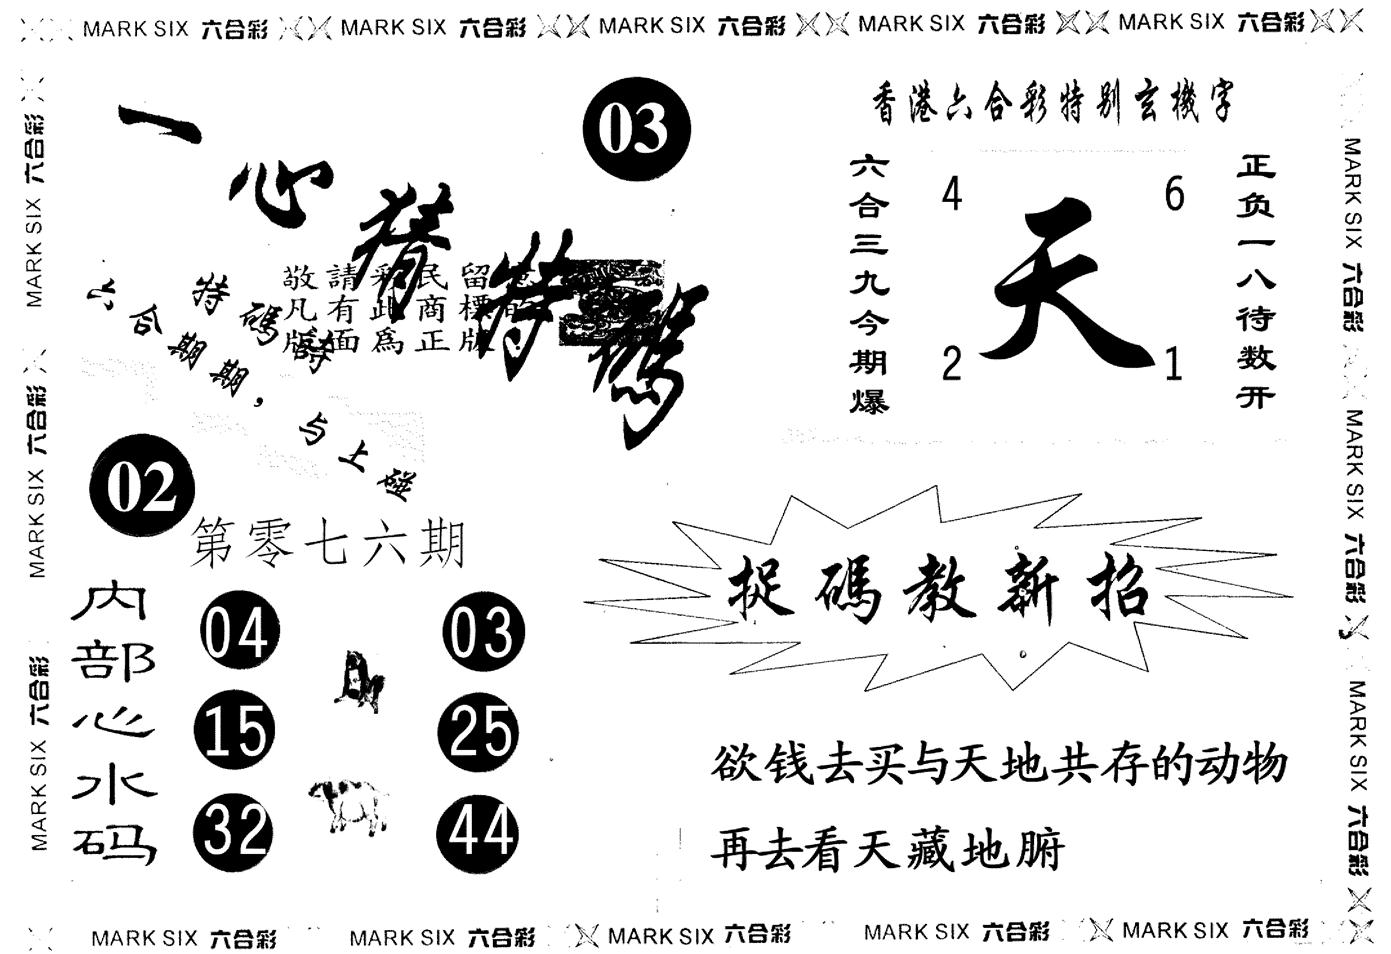 MARK SIX 六合彩 MARK SIX 六合彩 MARK SIX 六合彩 MARK SIX 六合彩 MARK SIX 六合彩
MARK SIX 六合彩 MARK SIX 六合彩 MARK SIX 六合彩
一心猜特碼
03
敬請彩民留意
凡有此商標的
版面為正版
特碼詩
六合期期，与上碰
02
第零七六期
内部心水码
04 03
15 25
32 44
香港六合彩特别玄機字
六合三九今期爆
4 6
天
2 1
正负一八待数开
捉碼教新招
欲钱去买与天地共存的动物
再去看天藏地腑
MARK SIX 六合彩 MARK SIX 六合彩 MARK SIX 六合彩
MARK SIX 六合彩 MARK SIX 六合彩 MARK SIX 六合彩 MARK SIX 六合彩 MARK SIX 六合彩